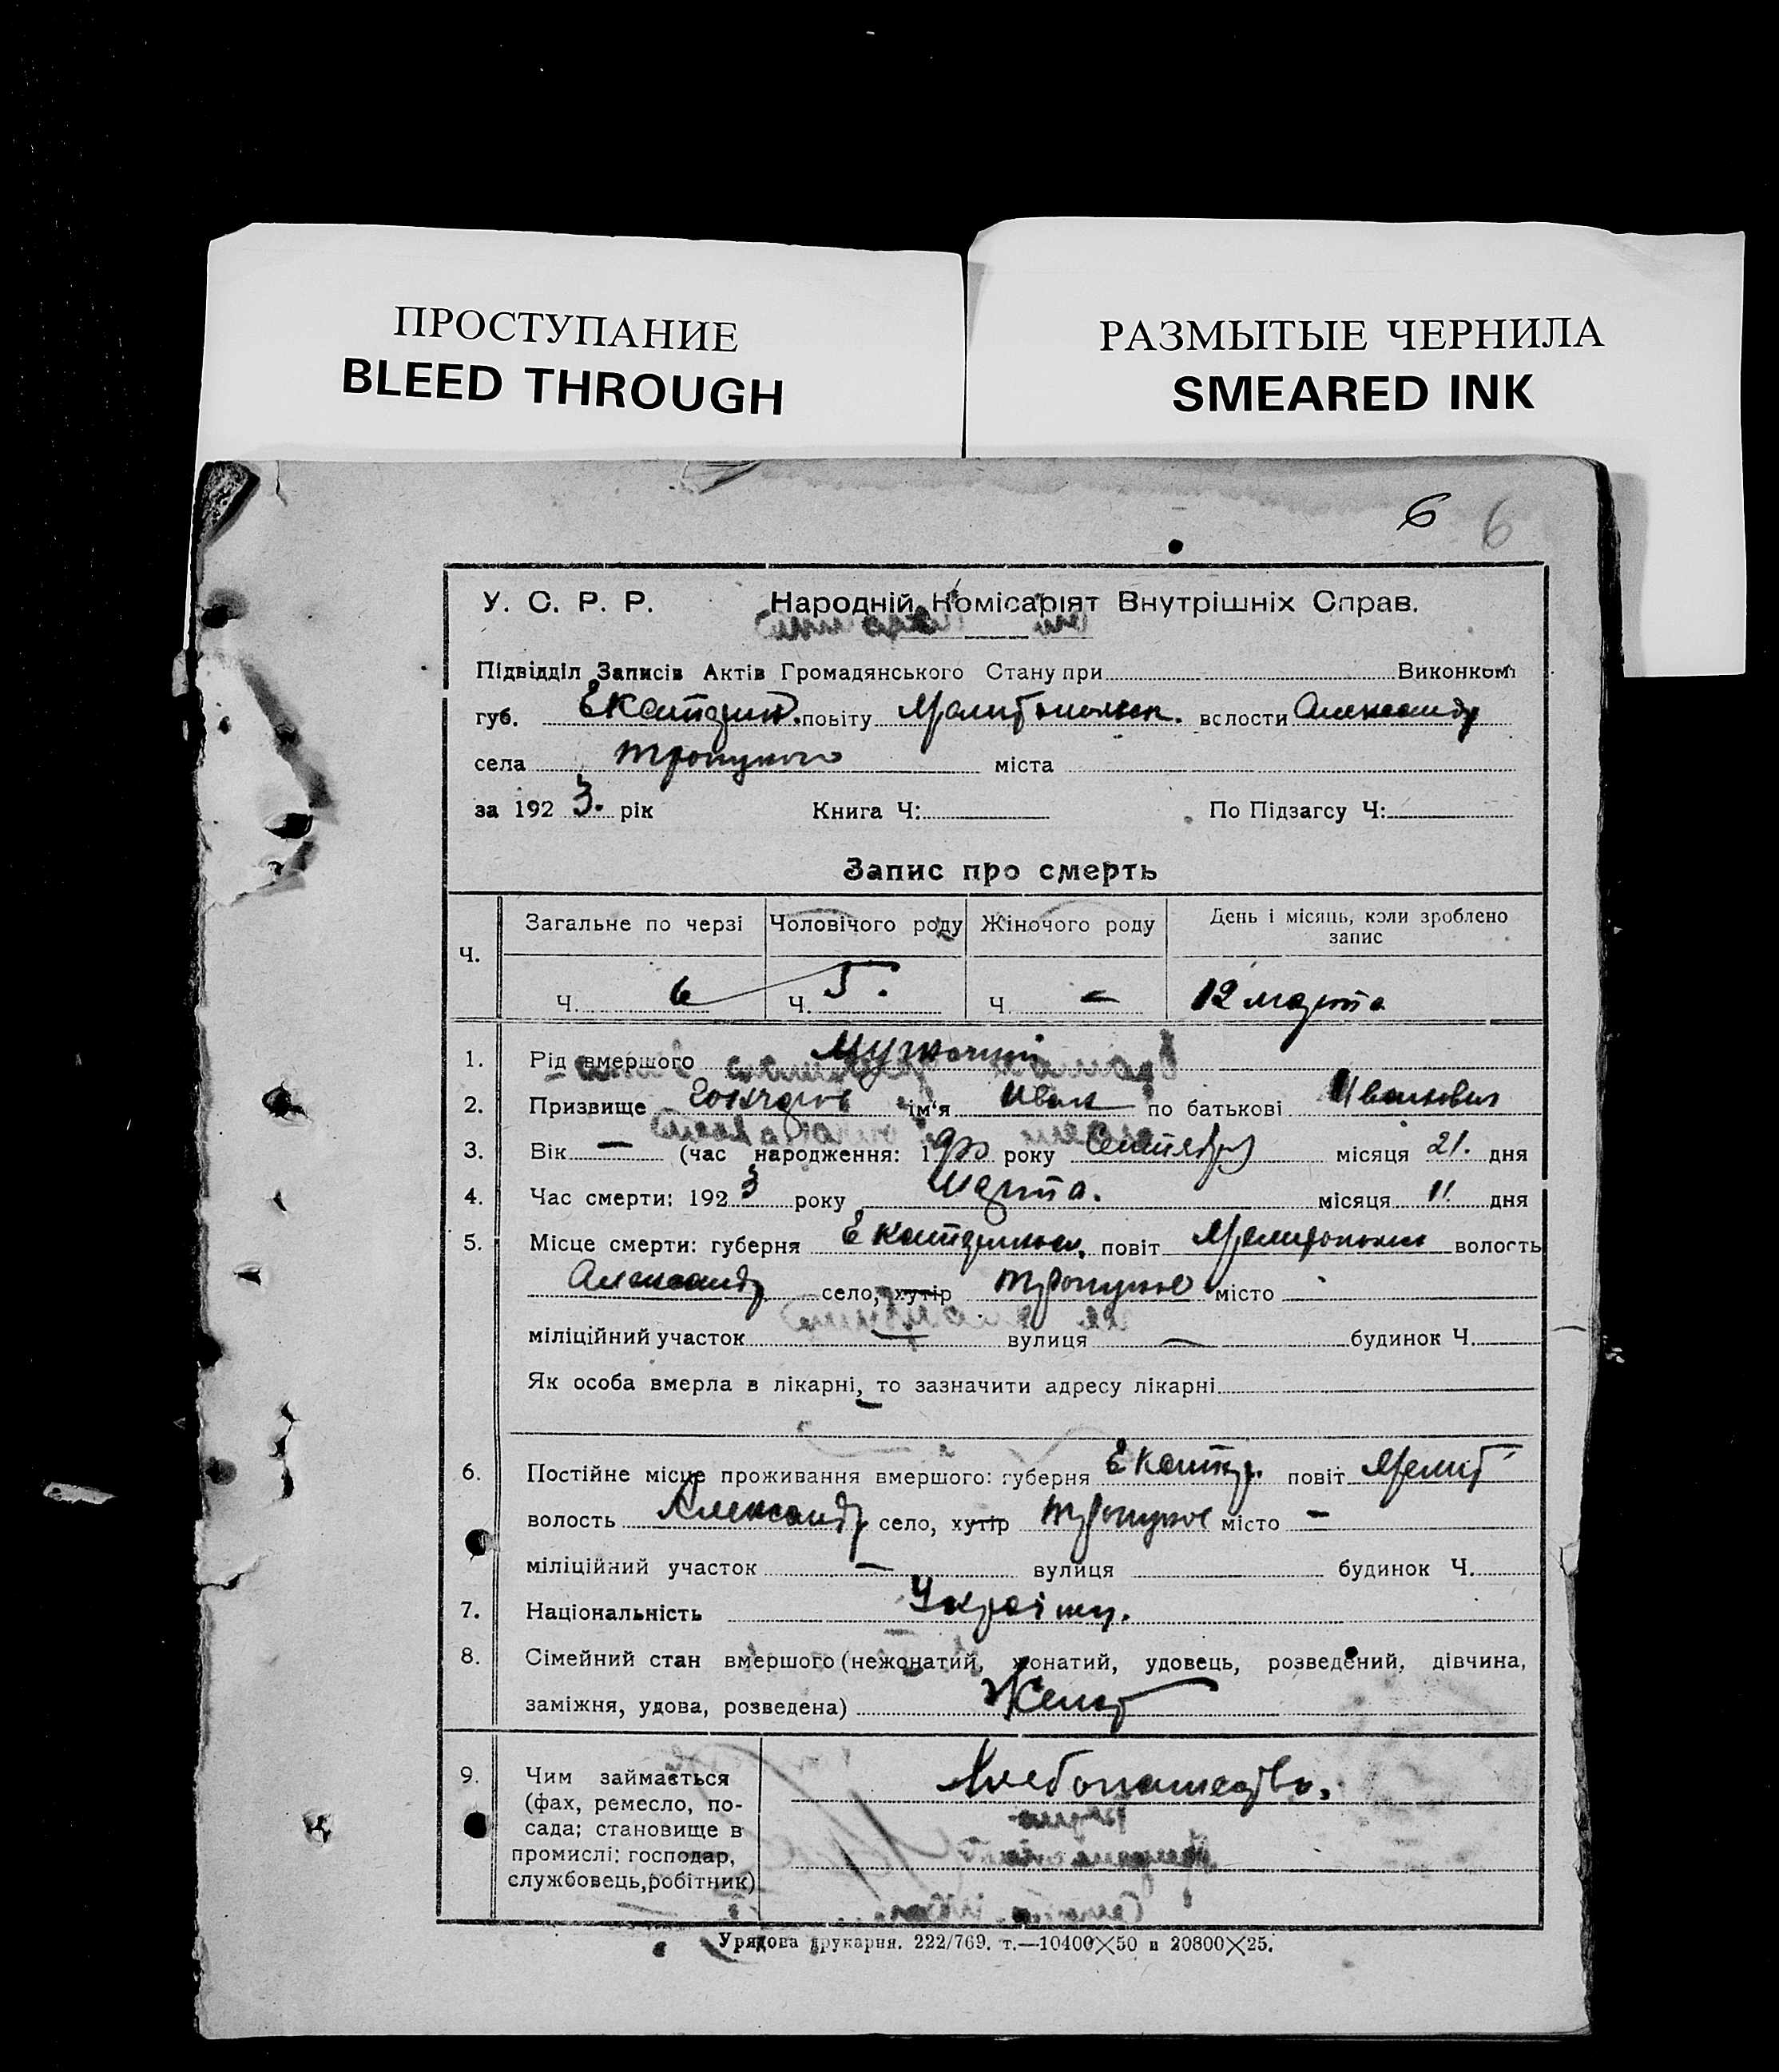 ПРОСТУПАНИЕ
BLEED THROUGH
РАЗМЫТЫЕ ЧЕРНИЛА
SMEARED INK
6 6
У. С. Р. Р. Народній Комісаріят Внутрішніх Справ.
Підвідділ Записів Актів Громадянського Стану при Виконком
губ. Екатерин. повіту волости Александр
села Троицкого міста
за 1923. рік Книга Ч: По Підзагсу Ч:
Запис про смерть
Ч. Загальне по черзі Чоловічого роду Жіночого роду День і місяць, коли зроблено запис
Ч. 6 Ч. 5. Ч. – 12 марта
1. Рід вмершого
2. Призвище Гончаров ім'я Иван по батькові Иванович
3. Вік — (час народження: 1 року Сентября місяця 21. дня
4. Час смерти: 1923 року Марта. місяця 11 дня
5. Місце смерти: губерня повіт волость
Александр село, хутір Троицкое місто
міліційний участок — вулиця — будинок Ч.
Як особа вмерла в лікарні, то зазначити адресу лікарні
6. Постійне місце проживання вмершого: губерня Екатер. повіт Мелит
волость Александр село, хутір Троицкое місто –
міліційний участок — вулиця будинок Ч.
7. Національність
8. Сімейний стан вмершого (нежонатий, жонатий, удовець, розведений, дівчина,
заміжня, удова, розведена) Женат
9. Чим займається
(фах, ремесло, по-
сада; становище в
промислі: господар,
службовець, робітник)
Хлебопашество.
Урядова друкарня. 222/769. т.—10400×50 и 20800×25.